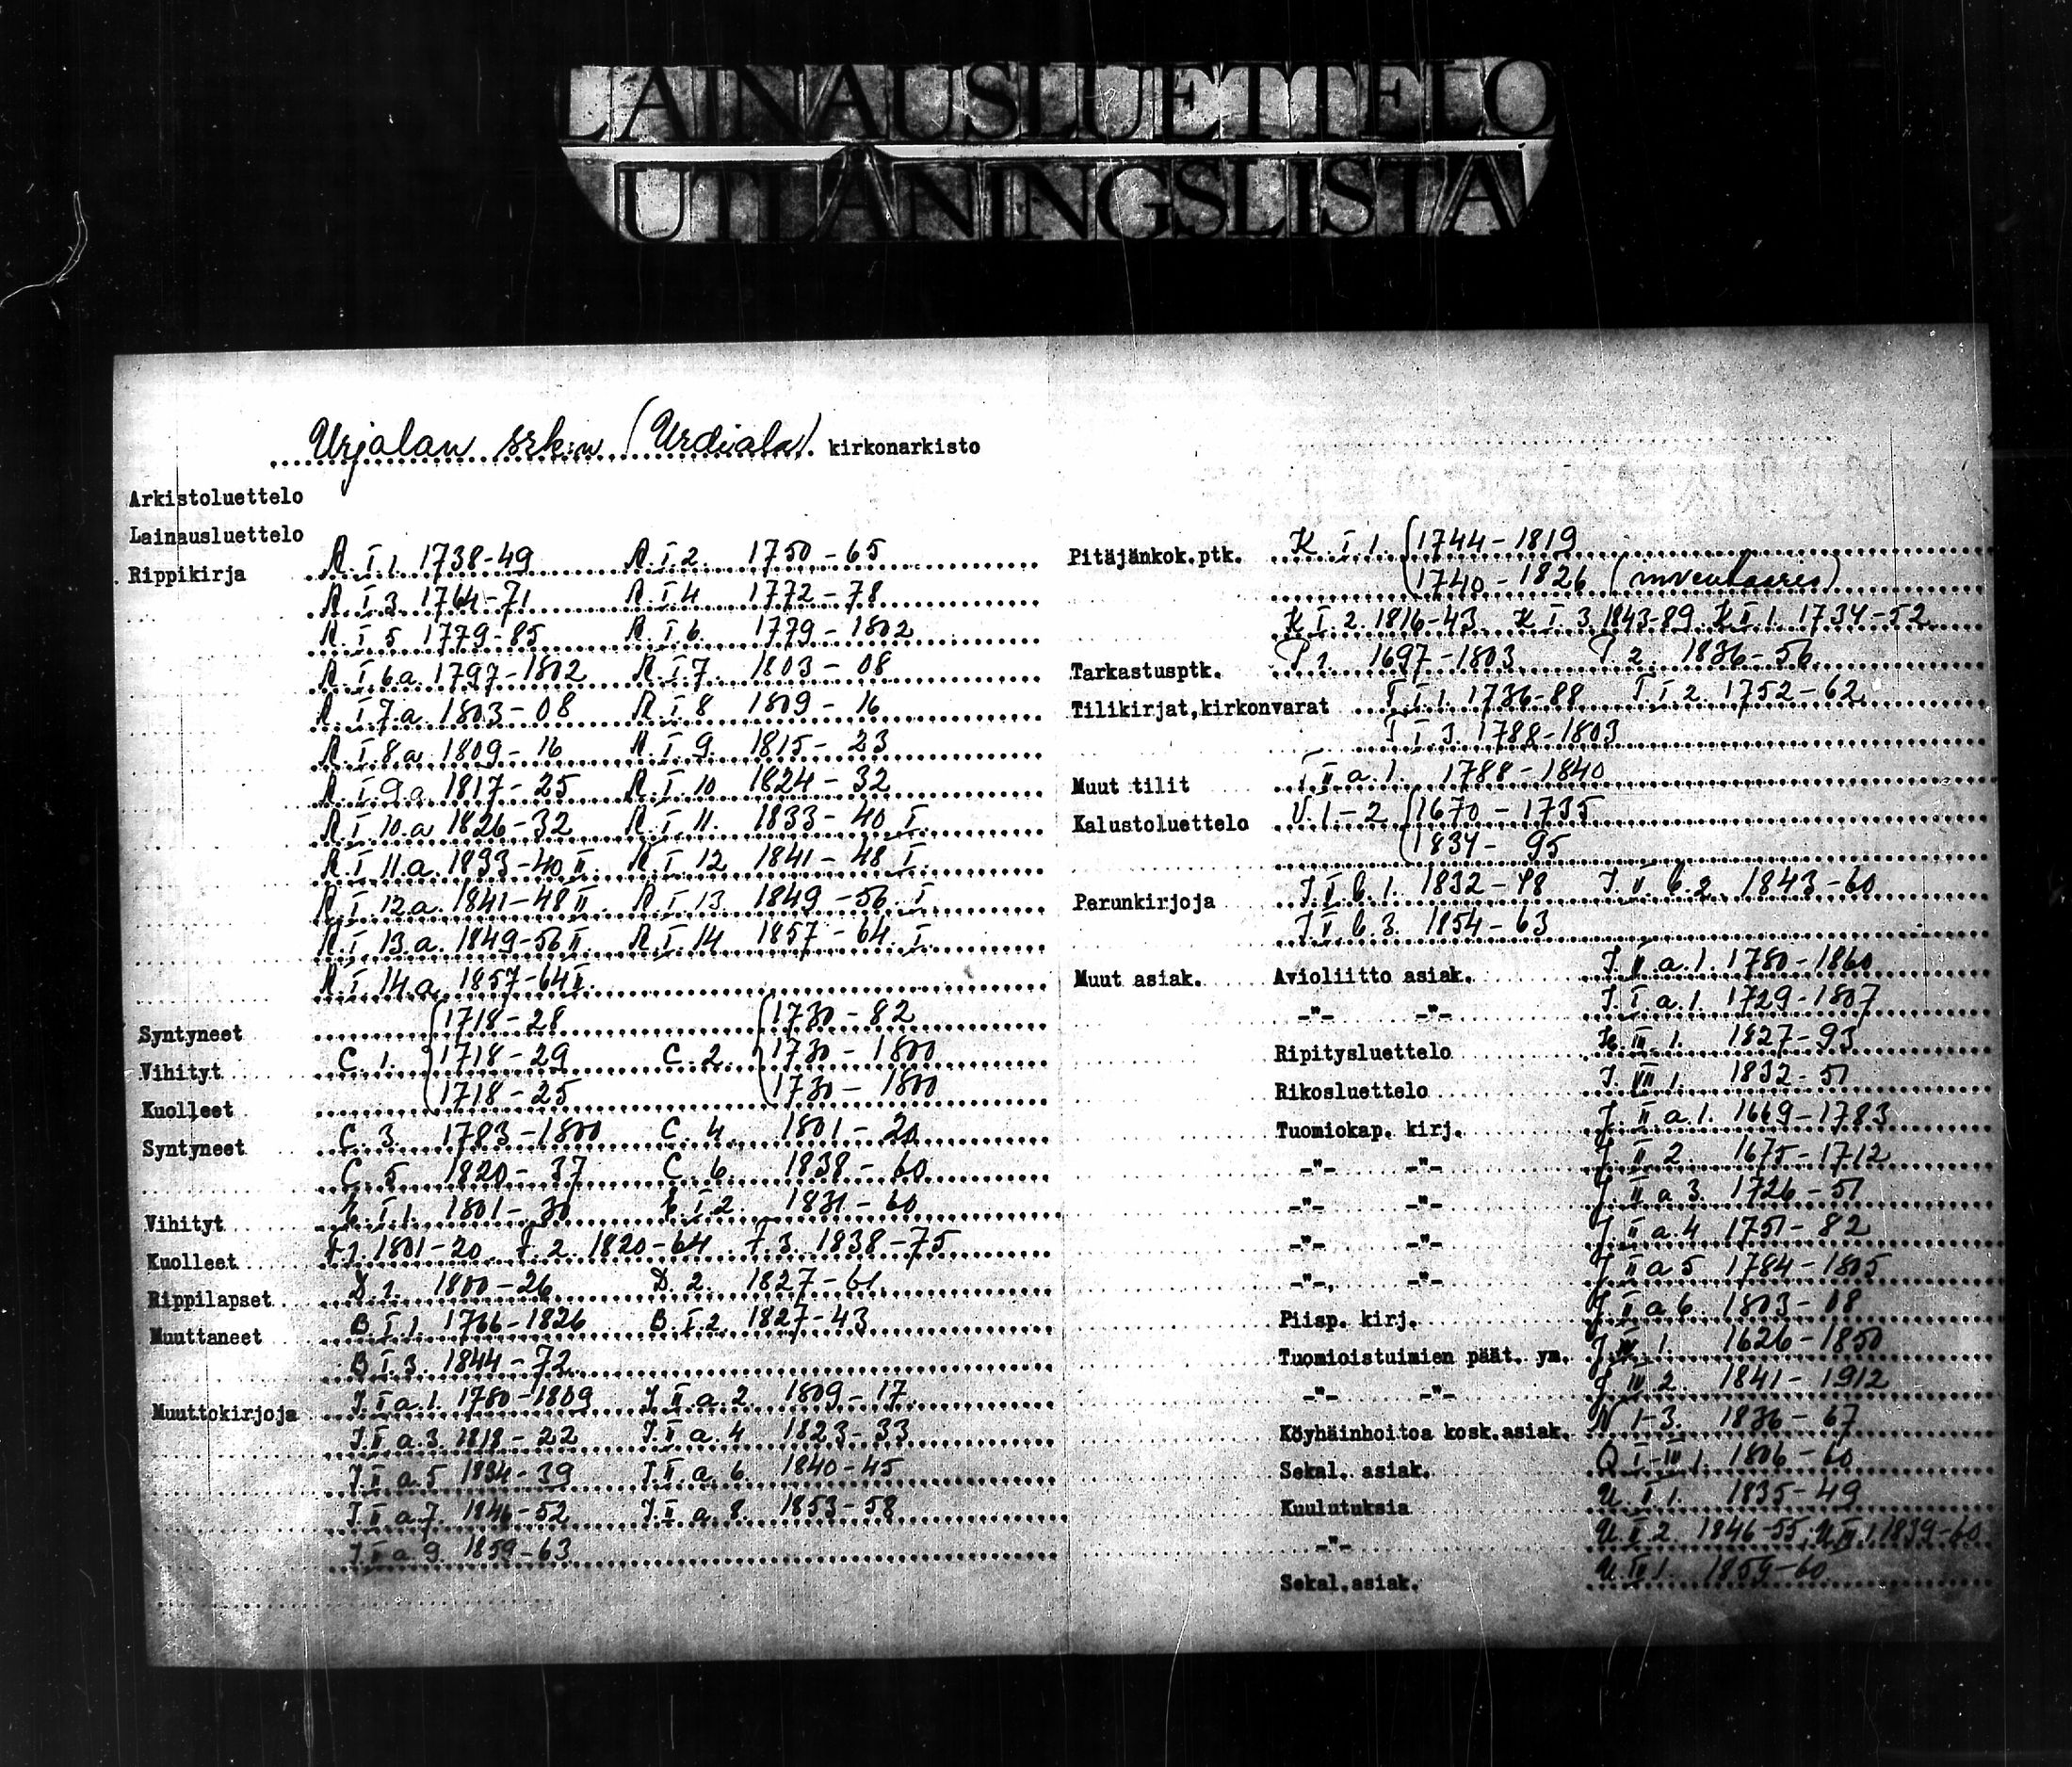 LAINAUSLUETTELO
UTLÅNINGSLISTA
Urjalan srk:n (Urdiala) kirkonarkisto
Arkistoluettelo
Lainausluettelo
Rippikirja R. I 1. 1738-49 R. I 2. 1750-65
R. I 3. 1764-71 R. I 4 1772-78
R. I 5 1779-85 R. I 6. 1779-1802
R. I 6.a. 1797-1802 R. I 7. 1803-08
R. I 7.a. 1803-08 R. I 8 1809-16
R. I 8 a 1809-16 R. I 9. 1815-23
R. I 9.a 1817-25 R. I 10 1824-32
R. I 10.a 1826-32 R. I 11. 1833-40 I.
R. I 11.a. 1833-40 II R. I 12 1841-48 I.
R. I 12 a. 1841-48 II. R. I 13. 1849-56. I
R. I 13.a. 1849-56 II. R. I 14 1857-64. I.
R. I 14.a 1857-64 II.
Syntyneet 1718-28 1730-82
Vihityt C. 1. 1718-29 C. 2. 1730-1800
Kuolleet 1718-25 1730-1800
Syntyneet C. 3. 1783-1800 C. 4. 1801-20
C. 5 1820-37 C. 6. 1838-60
Vihityt E. I 1. 1801-30 E. I 2. 1831-60
Kuolleet F 1. 1801-20 F. 2. 1820-64 F. 3. 1838-75
Rippilapset D. 1. 1800-26 D. 2. 1827-61
Muuttaneet B. I 1. 1766-1826 B. I. 2 1827-43
B I 3. 1844-72
Muuttokirjoja J. II a. 1. 1780-1809 J. II a. 2. 1809-17
J. II a. 3. 1818-22 J. II a. 4 1823-33
J. II a. 5 1834-39 J. II a. 6. 1840-45
J. II a. 7. 1846-52 J. II a. 8. 1853-58
J. II a. 9. 1859-63
Pitäjänkok.ptk. K. I. 1. 1744-1819
1740-1826 (inventaario)
K I. 2. 1816-43. K I. 3. 1843-89. K II. 1. 1734-52
Tarkastusptk. P 1. 1697-1803 P. 2. 1836-56
Tilikirjat,kirkonvarat T I 1. 1736-88 T I 2. 1752-62
T I 3. 1788-1803
Muut tilit T II a. 1. 1788-1840
Kalustoluettelo U. 1-2 1670-1735
1834-95
Perunkirjoja J. V b. 1. 1832-48 J. V. b. 2. 1843-60
J V b. 3. 1854-63
Muut asiak. Avioliitto asiak. 1780-1860
-"- -"- 1729-1807
Ripitysluettelo 1827-93
Rikosluettelo J. VII 1. 1832-51
Tuomiokap. kirj. J II a. 1. 1669-1783
-"- -"- J II 2. 1675-1712
-"- -"- J. II a 3. 1726-51
-"- -"- J. II a. 4 1751-82
-"- -"- J II a 5 1784-1805
Piisp. kirj. J II a 6. 1803-08
Tuomioistuimien päät. ym. J IV. 1. 1626-1850
-"- -"- J IV. 2. 1841-1912
Köyhäinhoitoa kosk.asiak. N 1-3. 1836-67
Sekal. asiak. Q I-III 1. 1806-60
Kuulutuksia U. II 1. 1835-49
-"- U. II 2. 1846-55, U. III. 1. 1839-60
Sekal.asiak. U. IV 1. 1859-60